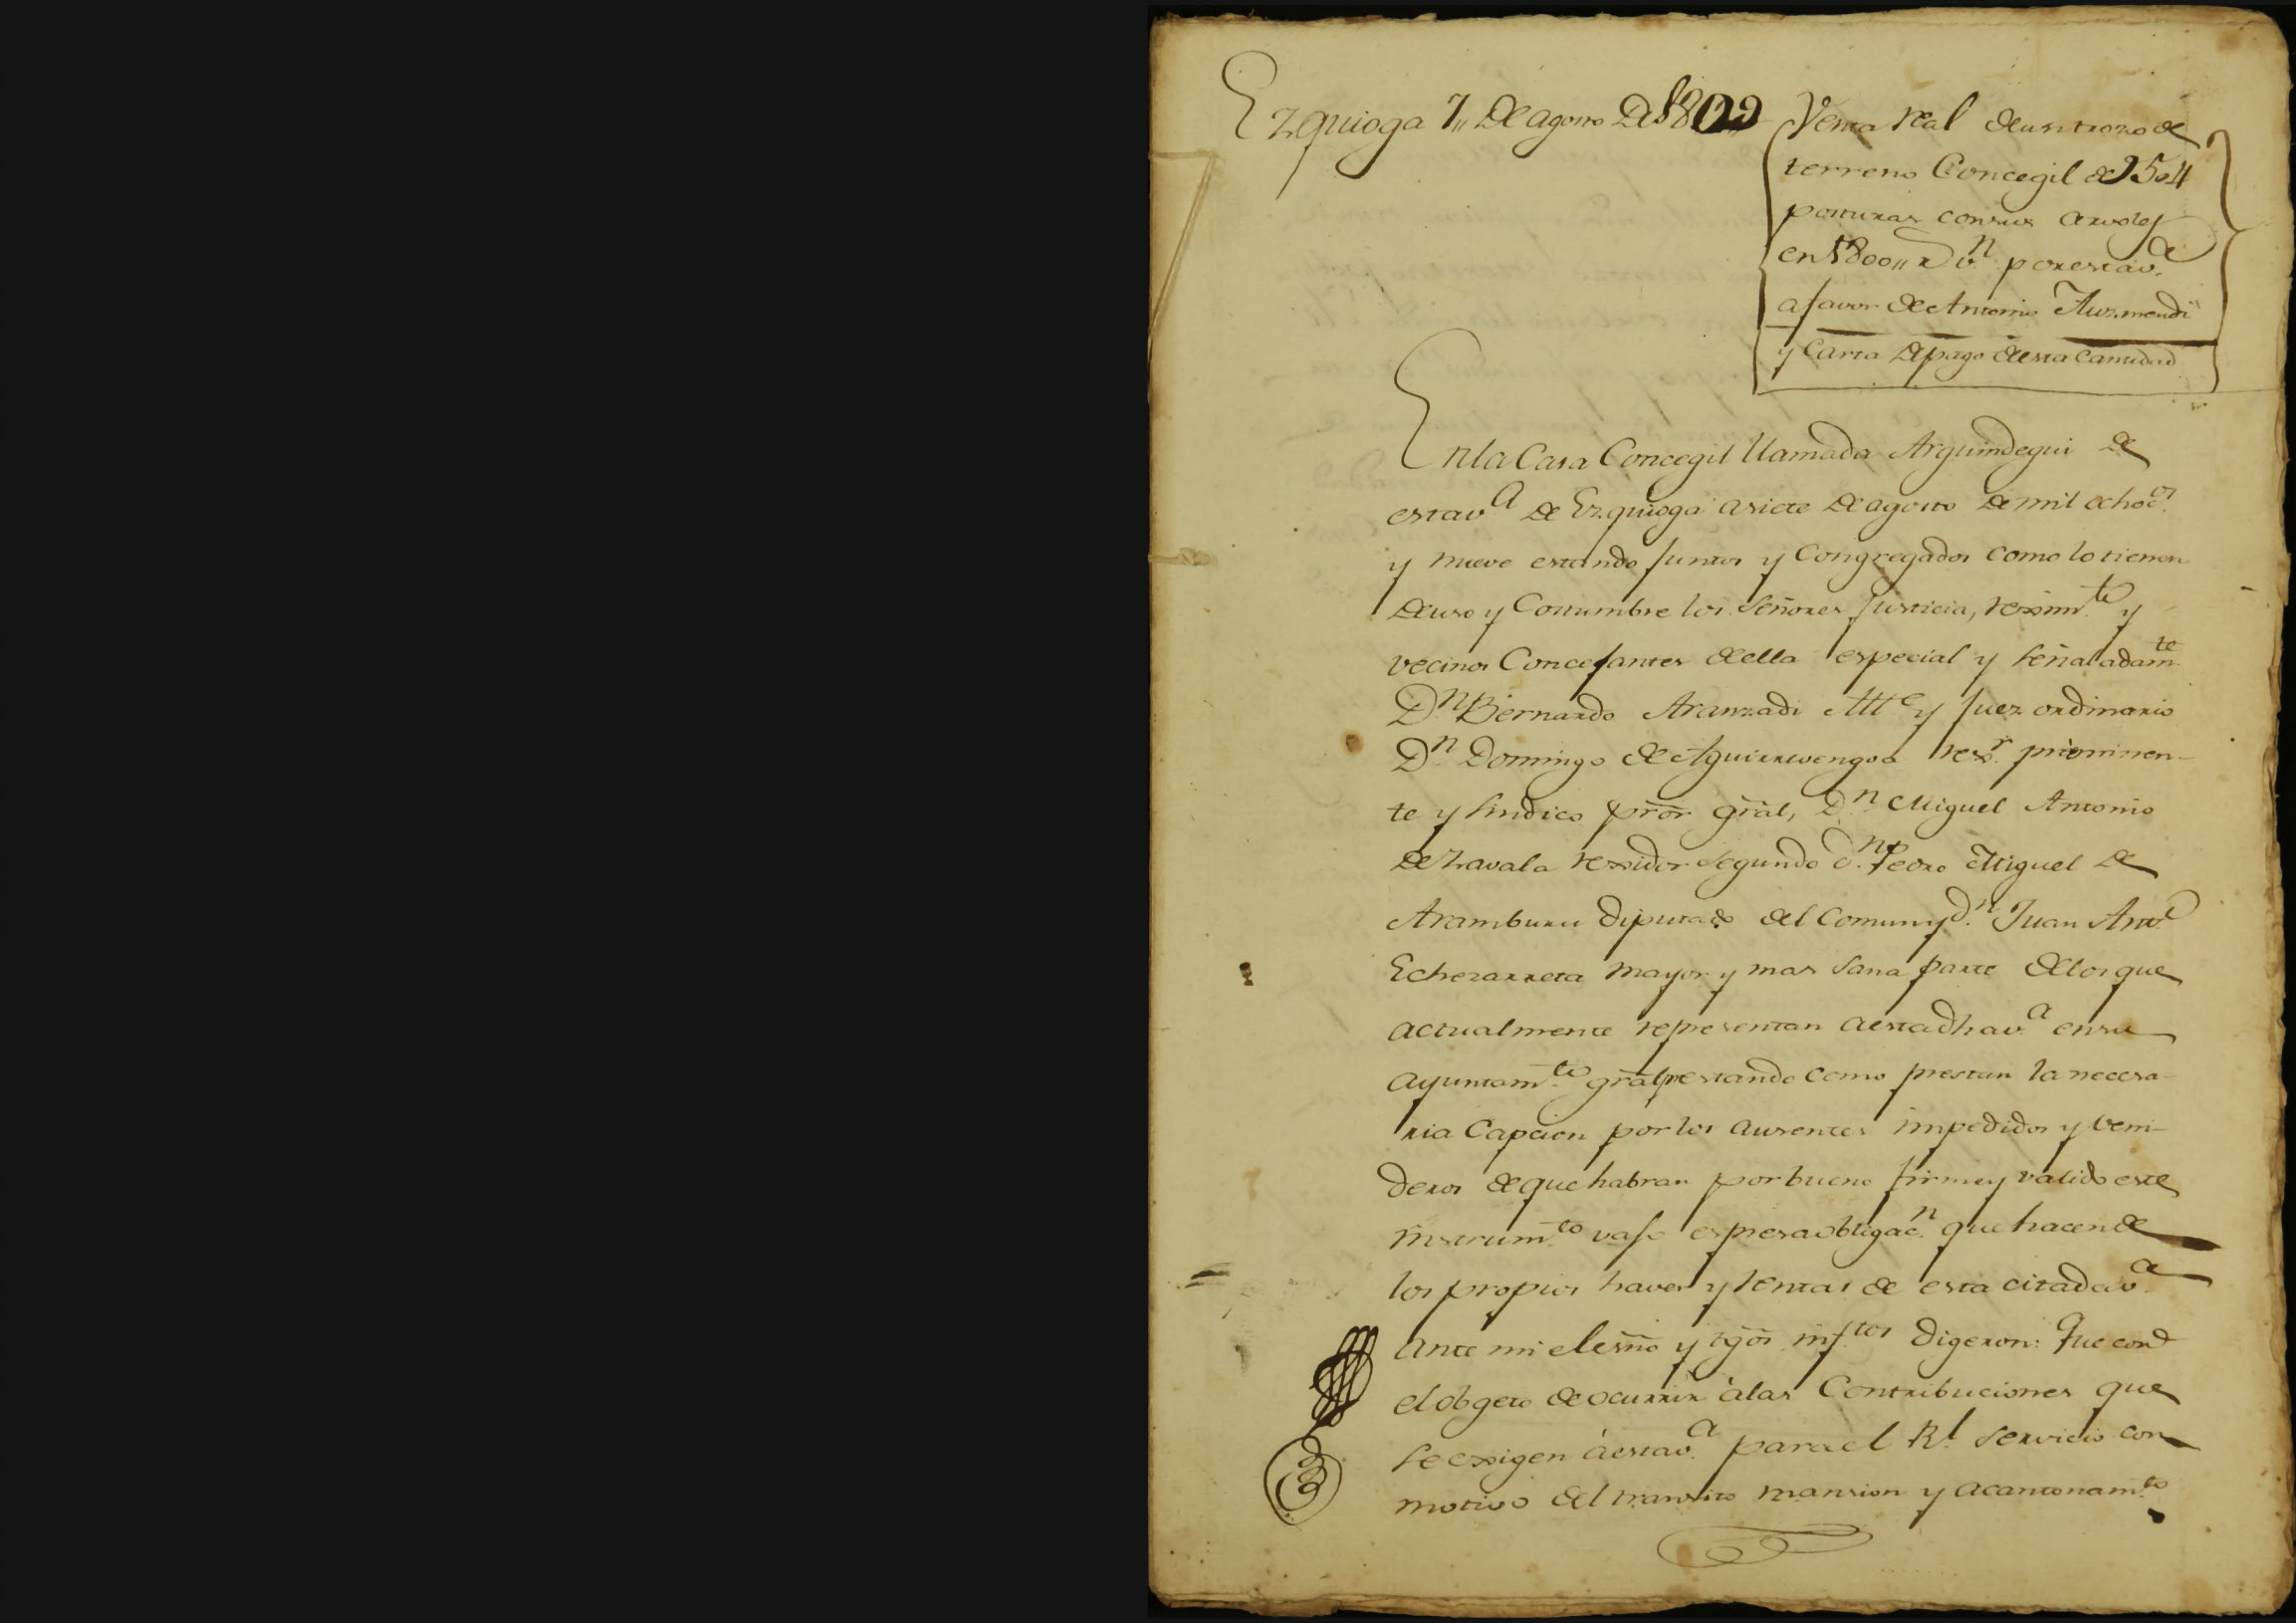 Ezquioga 7,, de agosto de 1809
Venta real de un trozo de
terreno Concegil de 1504
posturas con sus arvoles
en 1800,, rs vn por esta va. de
a favor de Antonio Auzmendi
y Carta de pago de esta cantidad
En la Casa Concegil llamada Arguindegui de
esta va de Ezquioga a siete de agosto de mil ochocos
y nueve estando juntos y Congregados como lo tienen
de uso y Costumbre los Señores Justicia, reximto y
vecinos Concejantes de ella especial y señaladamte
Dn Bernardo Aranzadi Alle y Juez ordinario
Dn Domingo de Aguirrevengoa rexr preminen-
te y sindico pror gral, Dn Miguel Antonio
de Zavala rexidor segundo dn Pedro Miguel de
Aramburu diputado del Comun y dn Juan Anto
Echezarreta mayor y mas sana parte de los que
actualmente representan a esta dha va en su
ayuntamto gral prestando como prestan la necesa-
ria Capcion por los ausentes impedidos y veni-
deros de que habran por bueno firme y valido este
instrumto vajo espresa obligacn que hacen de
los propios haver y rentas de esta citada va
Ante mi el esno y tgos infrtos digeron: Que con
el obgeto de ocurrir à las Contribuciones que
se exigen à esta va para el Rl servicio con
motivo del transito mansion y acantonamto